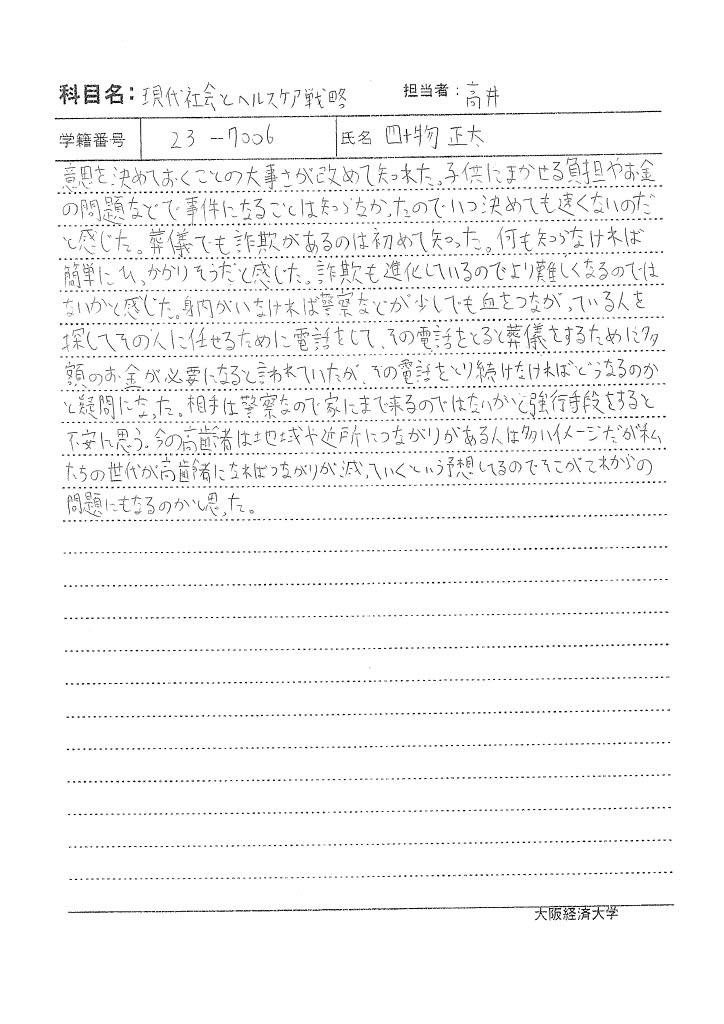 科目名: 現代社会とヘルスケア戦略 担当者: 高井
学籍番号 23-7006 氏名 四十物 正大
意思を決めておくことの大事さが改めて知れた。子供にまかせる負担やお金
の問題などで事件になることは知らなかったのでいつ決めても遅くないのだ
と感じた。葬儀でも詐欺があるのは初めて知った。何も知らなければ
簡単にひっかかりそうだと感じた。詐欺も進化しているのでより難しくなるのでは
ないかと感じた。身内がいなければ警察などが少しでも血をつながっている人を
探してその人に任せるために電話をして、その電話をとると葬儀をするために多
額のお金が必要になると言われていたが、その電話をとり続けなければどうなるのか
と疑問になった。相手は警察なので家にまで来るのではないかと強行手段をすると
不安に思う。今の高齢者は地域や近所につながりがある人は多いイメージだが私
たちの世代が高齢者になればつながりが減っていくという予想してるのでそこがこれからの
問題にもなるのかと思った。
大阪経済大学